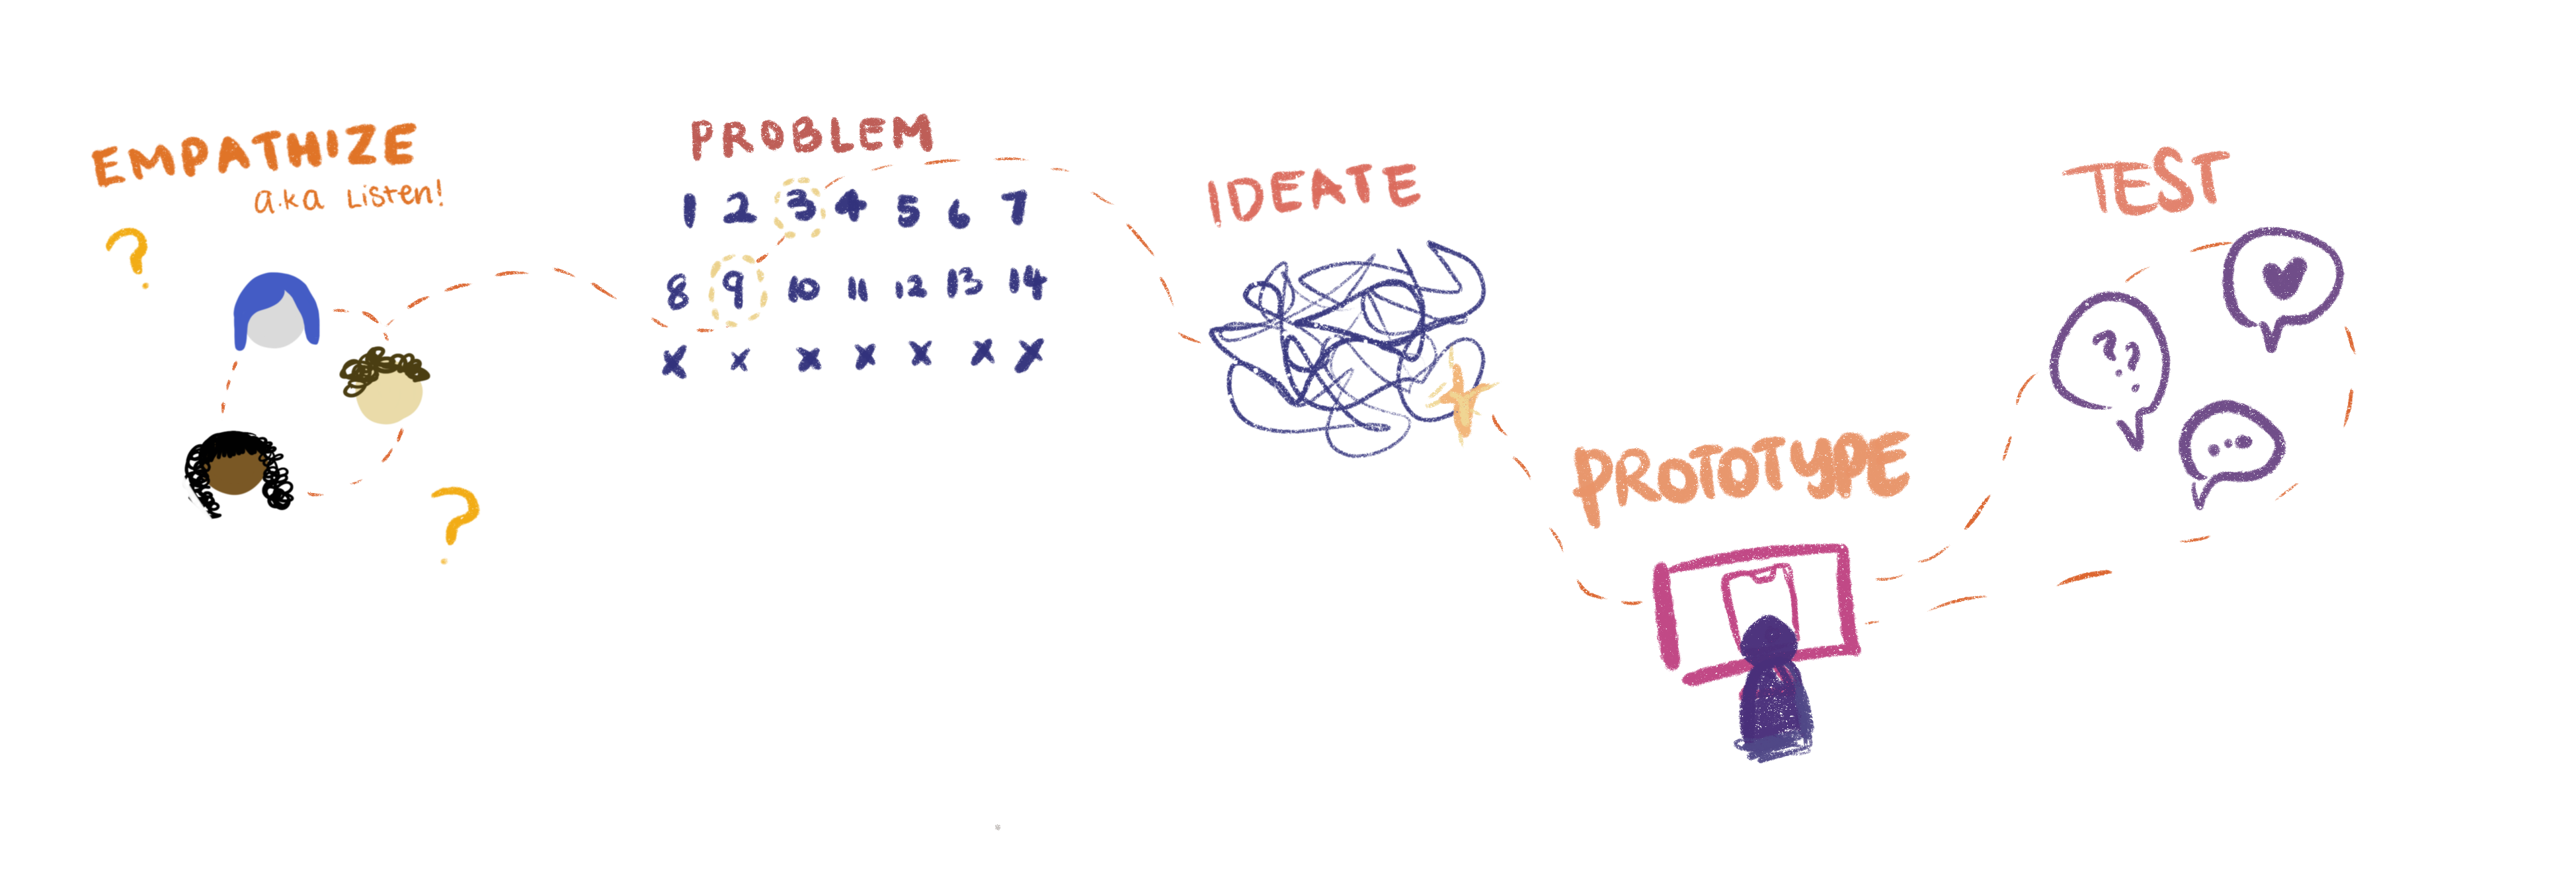 EMPATHIZE
a.k.a Listen!
?
?
PROBLEM
1 2 3 4 5 6 7
8 9 10 11 12 13 14
x x x x x x x
IDEATE
PROTOTYPE
TEST
??
...